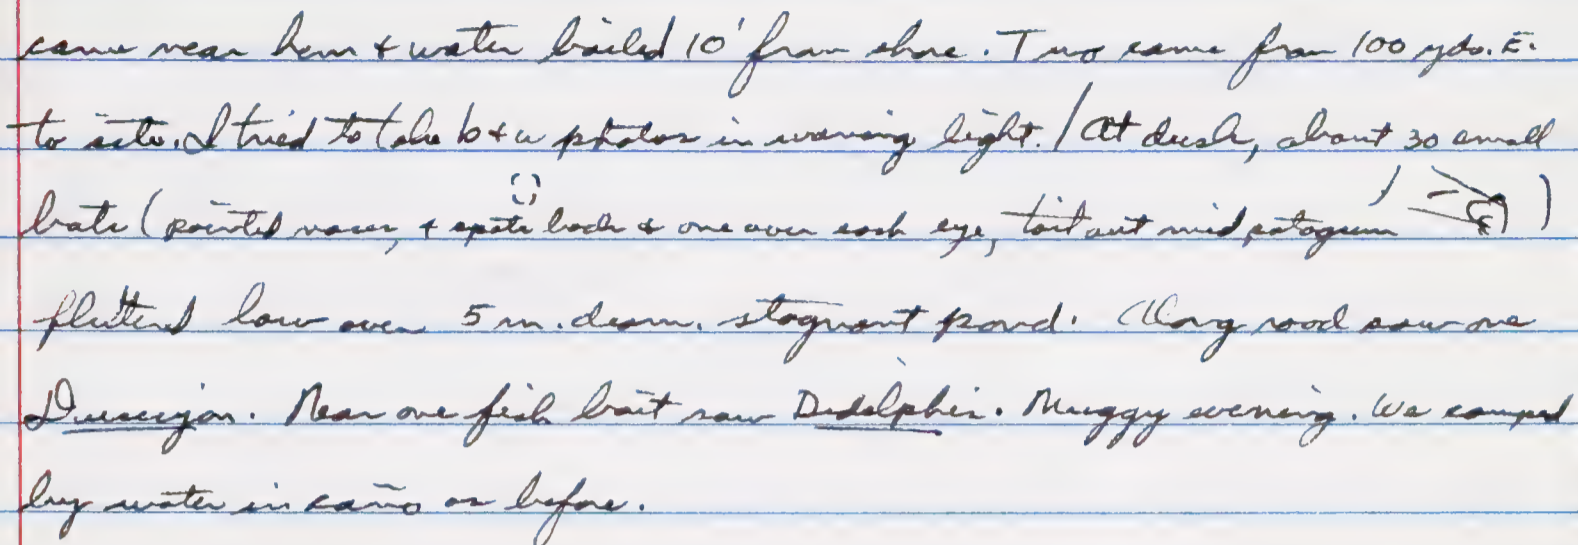 came near him & water boiled 10' from shore. Two came from 100 yds. E.
to site. I tried to take b & w photos in waning light. / At dusk, about 30 small
bats (pointed noses, & spots back & one over each eye, tail out mid patagium )
fluttered low over 5 m. diam. stagnant pond. Along road saw one
Near one fish bait saw Didelphis. Muggy evening. We camped
by water in caño as before.